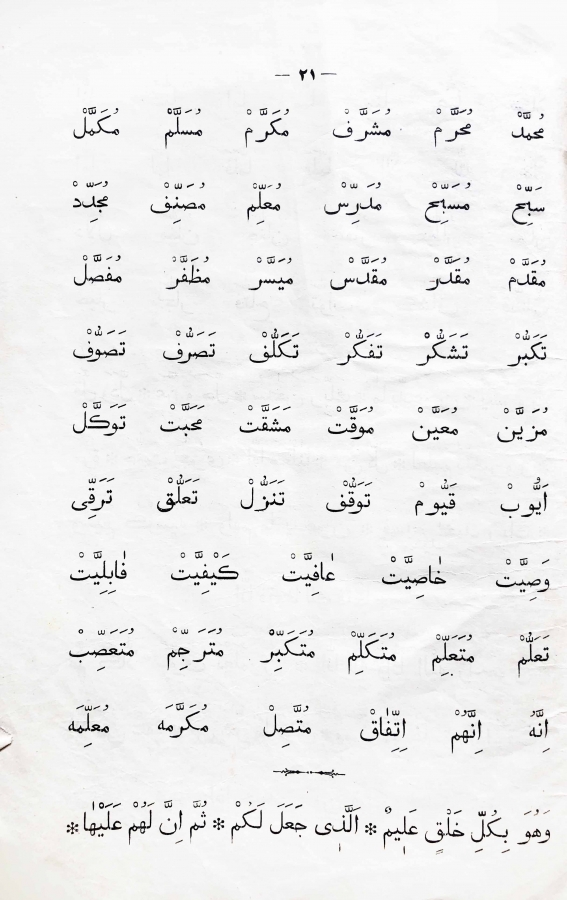 — ٢١ —
مُحَمَّدْ مُحَرَّمْ مُشَرَّفْ مُكَرَّمْ مُسَلَّمْ مُكَمَّلْ
سَبِّحْ مُسَبِّحْ مُدَرِّسْ مُعَلِّمْ مُصَنِّفْ مُجَدِّدْ
مُقَدَّمْ مُقَدَّرْ مُقَدَّسْ مُيَسَّرْ مُظَفَّرْ مُفَصَّلْ
تَكَبُّرْ تَشَكُّرْ تَفَكُّرْ تَكَلُّفْ تَصَرُّفْ تَصَوُّفْ
مُزَيَّنْ مُعَيَّنْ مُوَقَّتْ مَشَقَّتْ مَحَبَّتْ تَوَكَّلْ
اَيُّوبْ قَيُّومْ تَوَقُّفْ تَنَزُّلْ تَعَلُّقْ تَرَقِّى
وَصِيَّتْ خَاصِيَّتْ عَافِيَّتْ كَيْفِيَّتْ قَابِلِيَّتْ
تَعَلُّمْ مُتَعَلِّمْ مُتَكَلِّمْ مُتَكَبِّرْ مُتَرَجِّمْ مُتَعَصِّبْ
اِنَّهُ اِنَّهُمْ اِتِّفَاقْ مُتَّصِلْ مُكَرَّمَه مُعَلِّمَه
وَهُوَ بِكُلِّ خَلْقٍ عَلِيمٌ * اَلَّذِى جَعَلَ لَكُمْ * ثُمَّ اِنَّ لَهُمْ عَلَيْهَا *